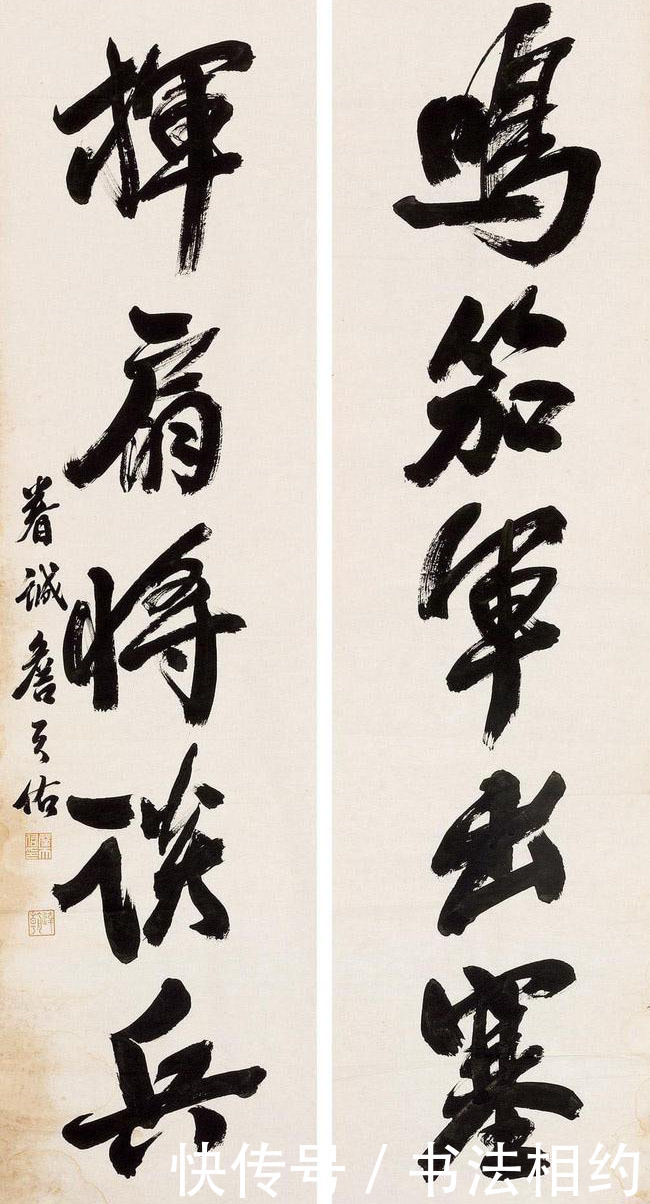 鳴笳軍出塞
揮扇將談兵
眷誠詹天佑
快传号 / 书法相约